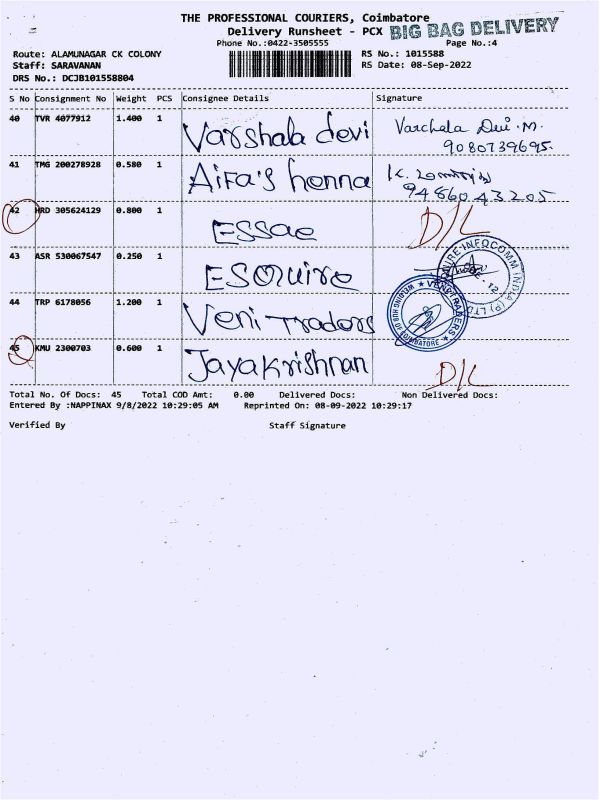 THE PROFESSIONAL COURIERS, Coimbatore
Delivery Runsheet - PCX BIG BAG DELIVERY
Phone No.:0422-3505555 Page No.:4
Route: ALAMUNAGAR CK COLONY RS No.: 1015588
Staff: SARAVANAN RS Date: 08-Sep-2022
DRS No.: DCJB101558804
S No Consignment No Weight PCS Consignee Details Signature
40 TVR 4077912 1.400 1 Varshala devi Varchala Devi.M.
9080739695.
41 TMG 200278928 0.580 1 Aifa's henna K.
9486043205
42 HRD 305624129 0.800 1 ESSae D/L
43 ASR 530067547 0.250 1 ESquire
44 TRP 6178056 1.200 1 Veni Traders VENI TRADERS
COIMBATORE
45 KMU 2300703 0.600 1 Jayakrishnan D/L
Total No. Of Docs: 45 Total COD Amt: 0.00 Delivered Docs: Non Delivered Docs:
Entered By :NAPPINAX 9/8/2022 10:29:05 AM Reprinted On: 08-09-2022 10:29:17
Verified By Staff Signature